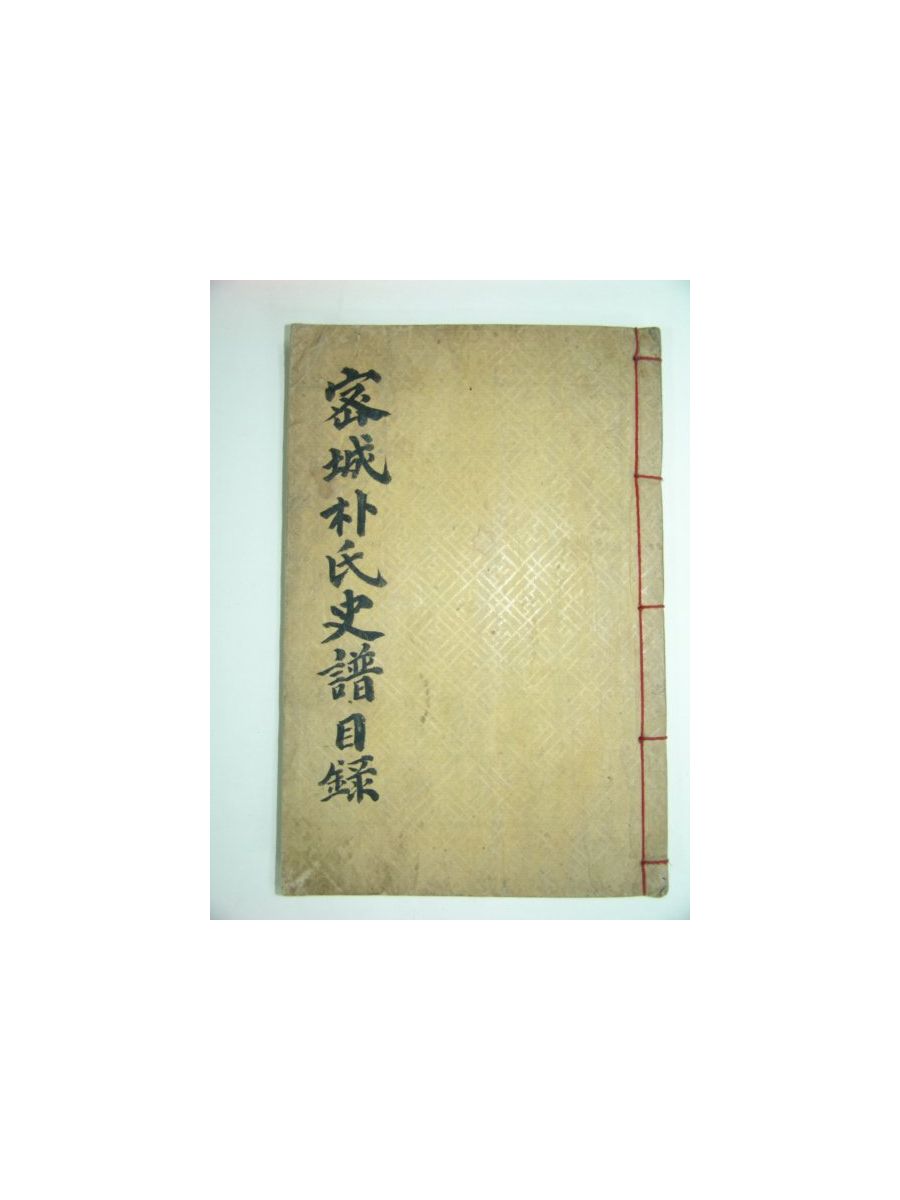 密城朴氏史譜目録